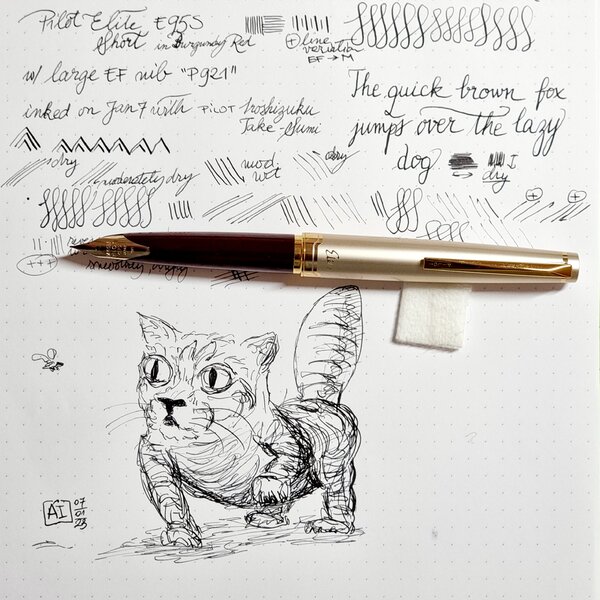 Pilot Elite E95S
Short in Burgundy Red
+ line variation
EF → M
w/ large EF nib "P921"
inked on Jan 7 with PILOT Iroshizuku
Take-Sumi
The quick brown fox
jumps over the lazy
dog
dry
dry
moderately dry
mod. wet
dry
+
+
+++
smoothly
AI
07
01
23